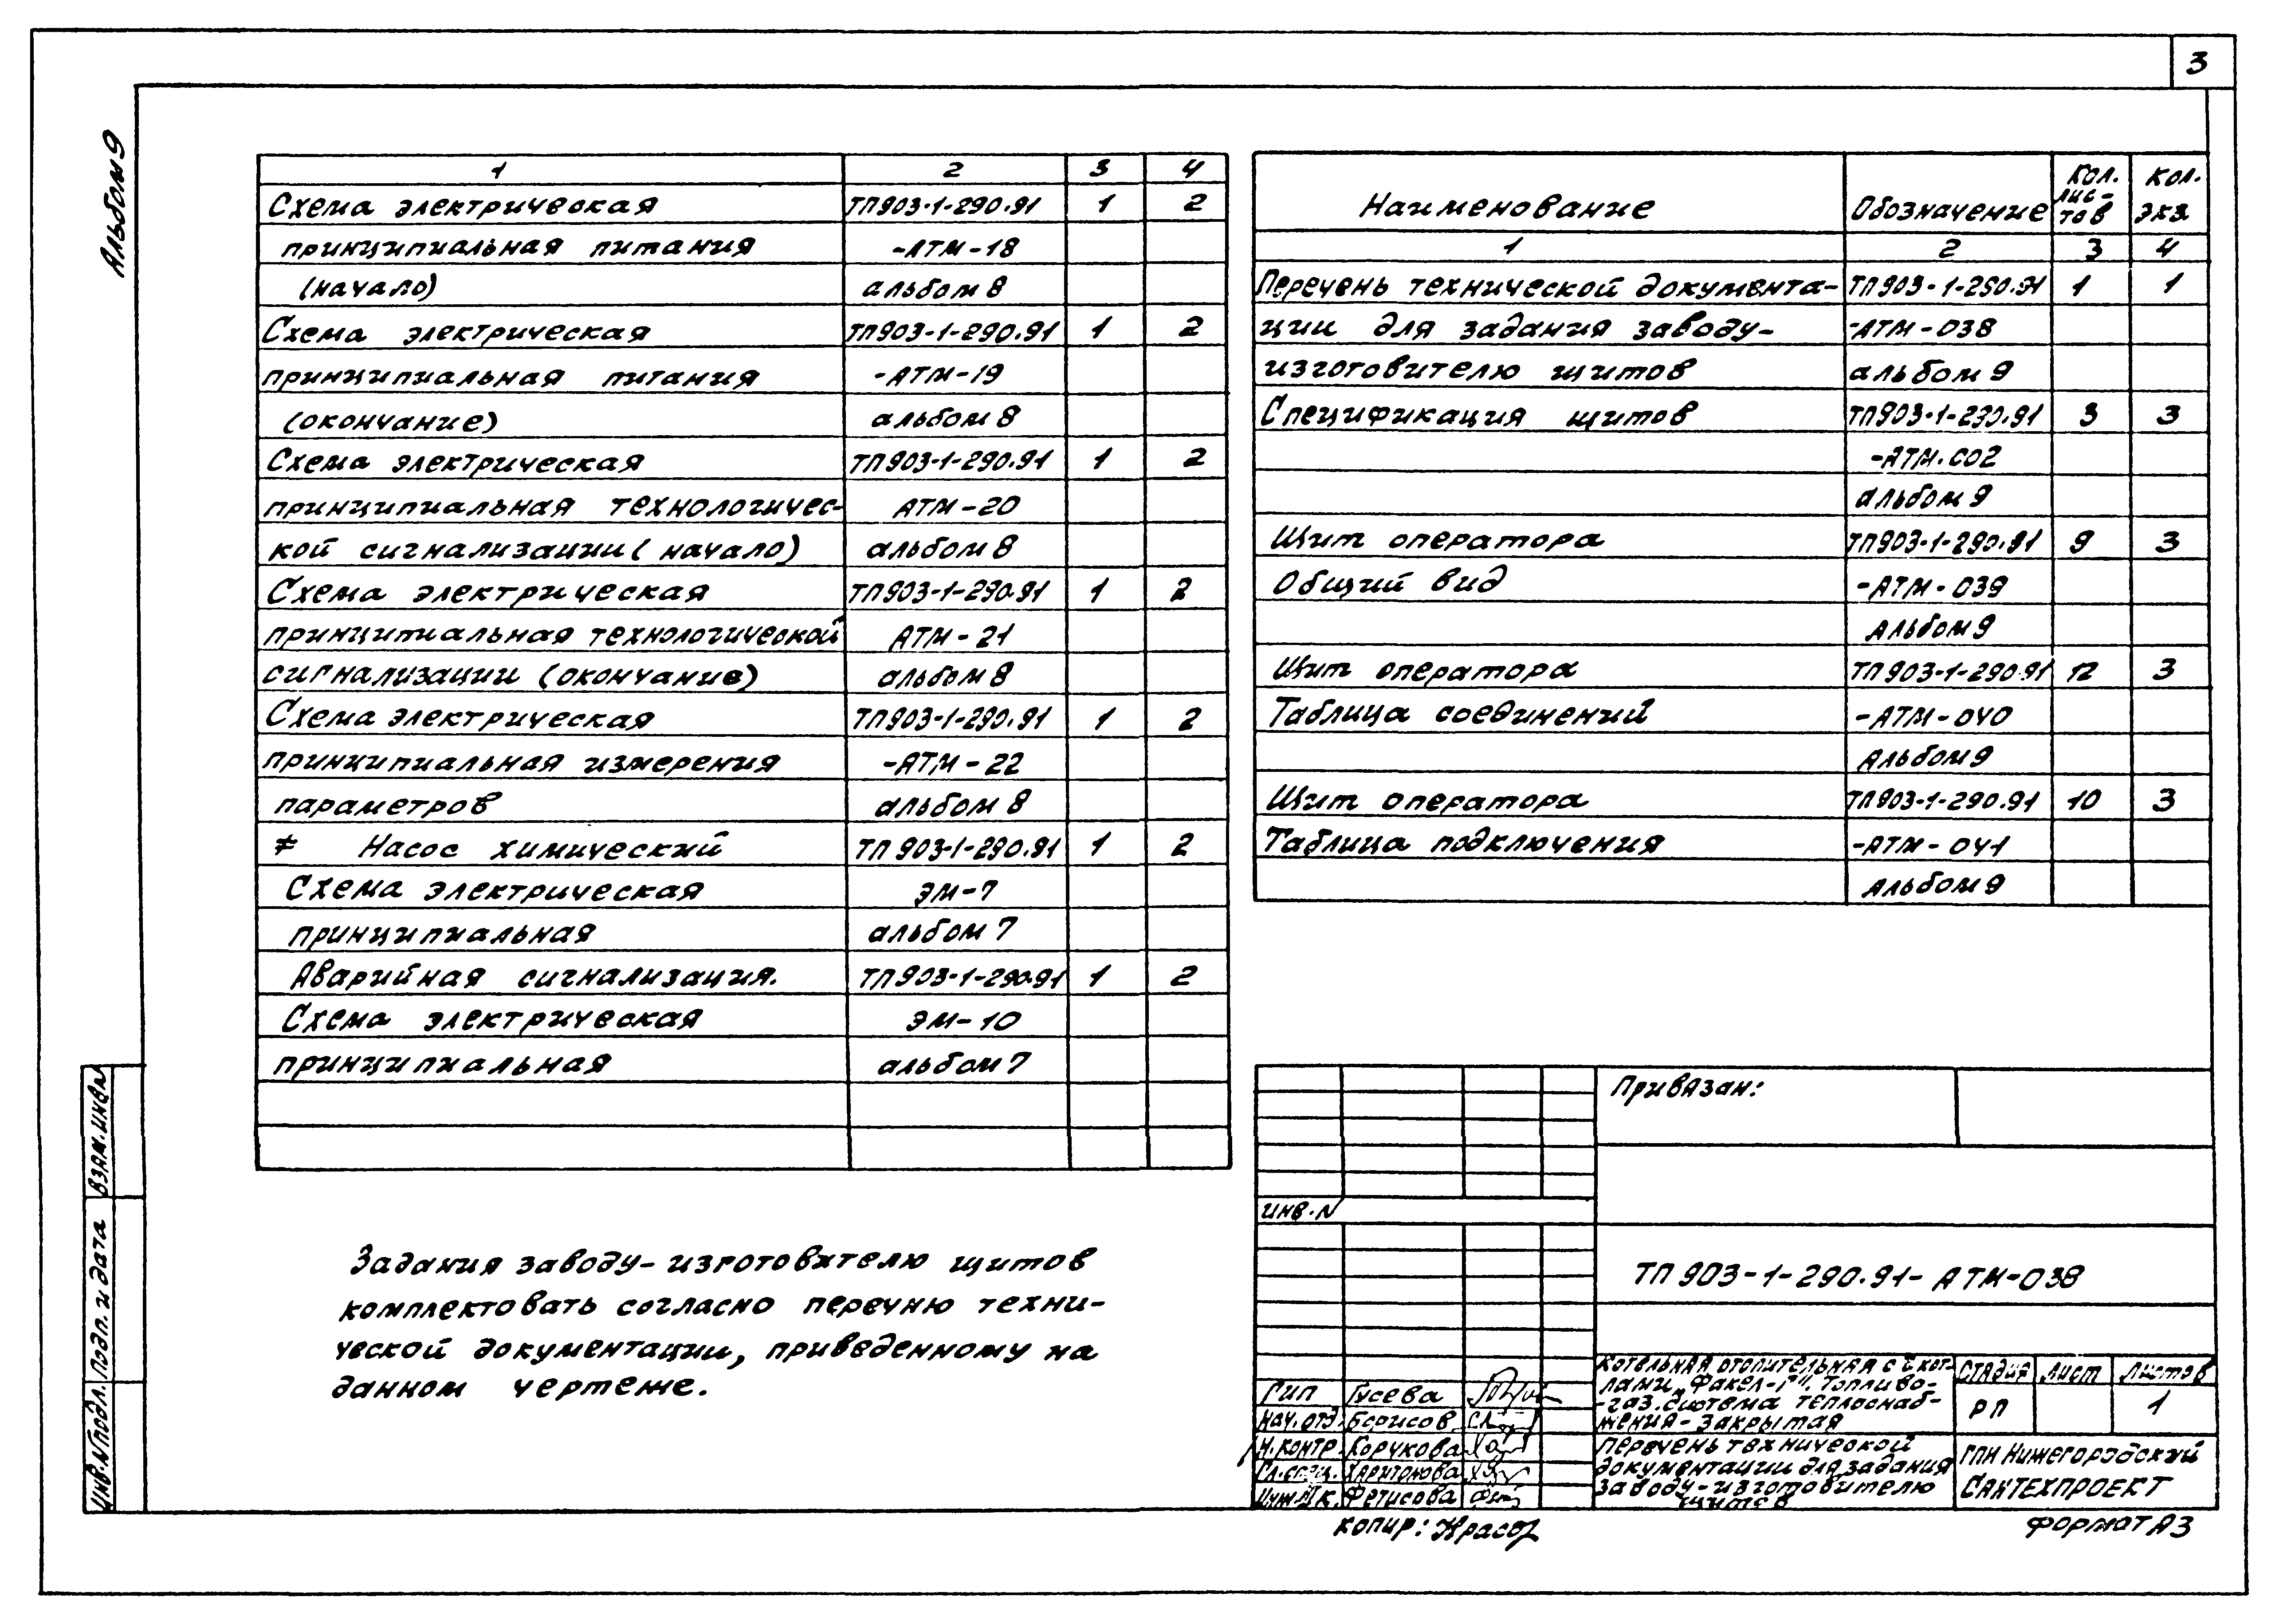 3
Альбом 9
1 2 3 4
Схема электрическая ТП903-1-290.91 1 2
принципиальная питания -АТМ-18
(начало) альбом 8
Схема электрическая ТП903-1-290.91 1 2
принципиальная питания -АТМ-19
(окончание) альбом 8
Схема электрическая ТП903-1-290.91 1 2
принципиальная технологичес- АТМ-20
кой сигнализации (начало) альбом 8
Схема электрическая ТП903-1-290.91 1 2
принципиальная технологической АТМ-21
сигнализации (окончание) альбом 8
Схема электрическая ТП903-1-290.91 1 2
принципиальная измерения -АТМ-22
параметров альбом 8
≠ Насос химический ТП 903-1-290.91 1 2
Схема электрическая ЭМ-7
принципиальная альбом 7
Аварийная сигнализация. ТП903-1-290.91 1 2
Схема электрическая ЭМ-10
принципиальная альбом 7
Наименование Обозначение Кол. лис-тов Кол. экз.
1 2 3 4
Перечень технической документа- ТП903-1-290.91 1 1
ции для задания заводу- -АТМ-038
изготовителю щитов альбом 9
Спецификация щитов ТП903-1-290.91 3 3
-АТМ.СО2
альбом 9
Щит оператора ТП903-1-290.91 9 3
Общий вид -АТМ-039
альбом 9
Щит оператора ТП903-1-290.91 12 3
Таблица соединений -АТМ-040
альбом 9
Щит оператора ТП903-1-290.91 10 3
Таблица подключения -АТМ-041
альбом 9
Задания заводу-изготовителю щитов
комплектовать согласно перечню техни-
ческой документации, приведенному на
данном чертеже.
Взам. инв N
Подп. и дата
Инв. N подл.
Привязан:
инв. N
ТП 903-1-290.91-АТМ-038
Гип Гусева
Нач. отд. Борисов
Н. контр. Корчкова
Гл. спец. Харитонова
Инж. II к. Фетисова
Котельная отопительная с кот-
лами „Факел-Г". Топливо-
-газ. Система теплоснаб-
жения-закрытая
Стадия Лист Листов
РП 1
Перечень технической
документации для задания
заводу-изготовителю
щитов
ГПИ Нижегородский
Сантехпроект
копир:
Формат А3